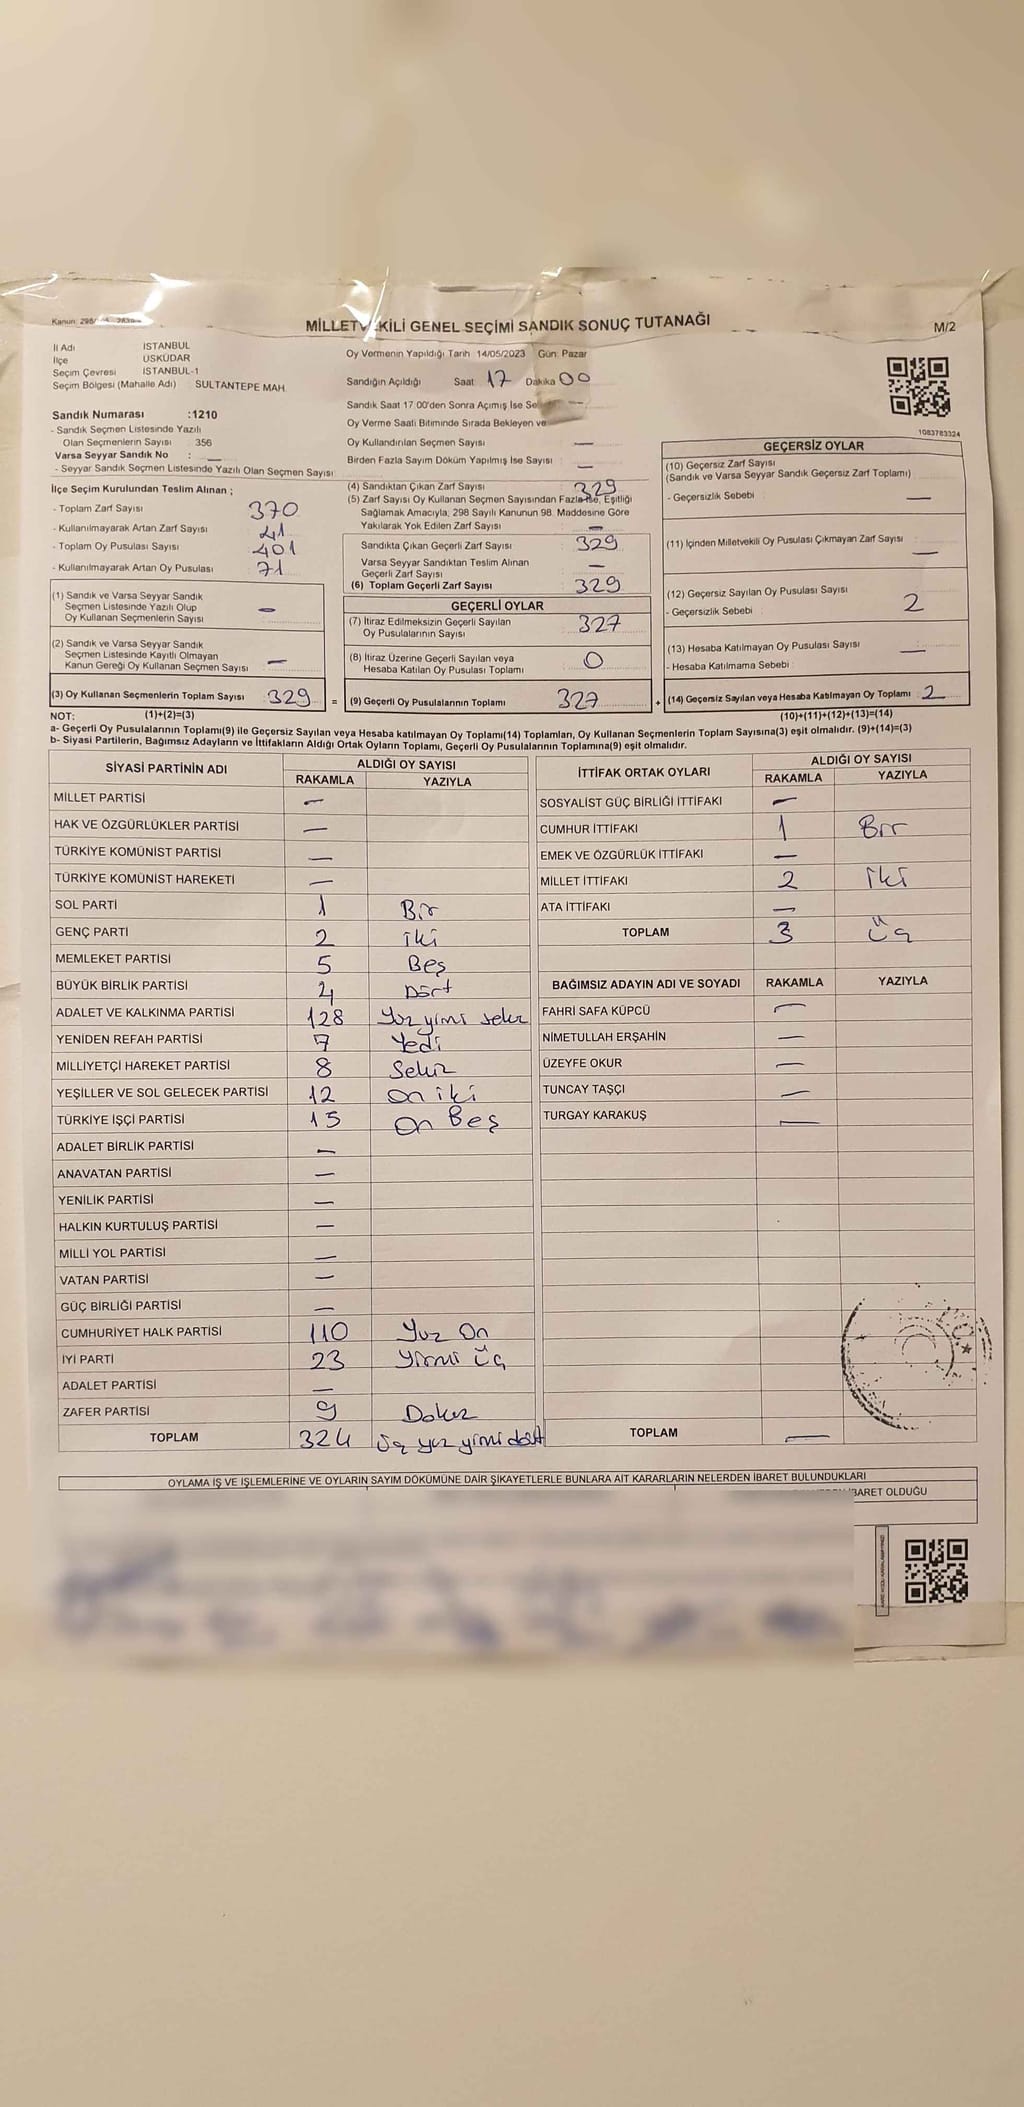 Kanun: 298/
MİLLETVEKİLİ GENEL SEÇİMİ SANDIK SONUÇ TUTANAĞI
M/2
İl Adı İSTANBUL
İlçe ÜSKÜDAR
Seçim Çevresi İSTANBUL-1
Seçim Bölgesi (Mahalle Adı) SULTANTEPE MAH.
Oy Vermenin Yapıldığı Tarih 14/05/2023 Gün: Pazar
Sandığın Açıldığı Saat 17 Dakika 00
Sandık Saat 17:00'den Sonra Açımış İse —
Oy Verme Saati Bitiminde Sırada Bekleyen ve
Oy Kullandırılan Seçmen Sayısı —
Birden Fazla Sayım Döküm Yapılmış İse Sayısı : —
1083783324
Sandık Numarası :1210
- Sandık Seçmen Listesinde Yazılı
Olan Seçmenlerin Sayısı 356
Varsa Seyyar Sandık No : —
- Seyyar Sandık Seçmen Listesinde Yazılı Olan Seçmen Sayısı
İlçe Seçim Kurulundan Teslim Alınan ;
- Toplam Zarf Sayısı 370
- Kullanılmayarak Artan Zarf Sayısı 41
- Toplam Oy Pusulası Sayısı 401
- Kullanılmayarak Artan Oy Pusulası 71
(1) Sandık ve Varsa Seyyar Sandık
Seçmen Listesinde Yazılı Olup
Oy Kullanan Seçmenlerin Sayısı —
(2) Sandık ve Varsa Seyyar Sandık
Seçmen Listesinde Kayıtlı Olmayan
Kanun Gereği Oy Kullanan Seçmen Sayısı —
(3) Oy Kullanan Seçmenlerin Toplam Sayısı 329 =
(4) Sandıktan Çıkan Zarf Sayısı : 329
(5) Zarf Sayısı Oy Kullanan Seçmen Sayısından Fazla İse, Eşitliği
Sağlamak Amacıyla, 298 Sayılı Kanunun 98. Maddesine Göre
Yakılarak Yok Edilen Zarf Sayısı —
Sandıkta Çıkan Geçerli Zarf Sayısı 329
Varsa Seyyar Sandıktan Teslim Alınan
Geçerli Zarf Sayısı —
(6) Toplam Geçerli Zarf Sayısı 329
GEÇERLİ OYLAR
(7) İtiraz Edilmeksizin Geçerli Sayılan
Oy Pusulalarının Sayısı 327
(8) İtiraz Üzerine Geçerli Sayılan veya
Hesaba Katılan Oy Pusulası Toplamı 0
(9) Geçerli Oy Pusulalarının Toplamı 327 +
GEÇERSİZ OYLAR
(10) Geçersiz Zarf Sayısı
(Sandık ve Varsa Seyyar Sandık Geçersiz Zarf Toplamı)
- Geçersizlik Sebebi : —
(11) İçinden Milletvekili Oy Pusulası Çıkmayan Zarf Sayısı —
(12) Geçersiz Sayılan Oy Pusulası Sayısı
- Geçersizlik Sebebi : 2
(13) Hesaba Katılmayan Oy Pusulası Sayısı —
- Hesaba Katılmama Sebebi :
(14) Geçersiz Sayılan veya Hesaba Katılmayan Oy Toplamı 2
NOT: (1)+(2)=(3)
(10)+(11)+(12)+(13)=(14)
a- Geçerli Oy Pusulalarının Toplamı(9) ile Geçersiz Sayılan veya Hesaba katılmayan Oy Toplamı(14) Toplamları, Oy Kullanan Seçmenlerin Toplam Sayısına(3) eşit olmalıdır. (9)+(14)=(3)
b- Siyasi Partilerin, Bağımsız Adayların ve İttifakların Aldığı Ortak Oyların Toplamı, Geçerli Oy Pusulalarının Toplamına(9) eşit olmalıdır.
SİYASİ PARTİNİN ADI
ALDIĞI OY SAYISI
RAKAMLA YAZIYLA
MİLLET PARTİSİ —
HAK VE ÖZGÜRLÜKLER PARTİSİ —
TÜRKİYE KOMÜNİST PARTİSİ —
TÜRKİYE KOMÜNİST HAREKETİ —
SOL PARTİ 1 Bir
GENÇ PARTİ 2 iki
MEMLEKET PARTİSİ 5 Beş
BÜYÜK BİRLİK PARTİSİ 4 Dört
ADALET VE KALKINMA PARTİSİ 128 Yüz yimi sekiz
YENİDEN REFAH PARTİSİ 7 Yedi
MİLLİYETÇİ HAREKET PARTİSİ 8 Sekiz
YEŞİLLER VE SOL GELECEK PARTİSİ 12 On iki
TÜRKİYE İŞÇİ PARTİSİ 15 On Beş
ADALET BİRLİK PARTİSİ —
ANAVATAN PARTİSİ —
YENİLİK PARTİSİ —
HALKIN KURTULUŞ PARTİSİ —
MİLLİ YOL PARTİSİ —
VATAN PARTİSİ —
GÜÇ BİRLİĞİ PARTİSİ —
CUMHURİYET HALK PARTİSİ 110 Yuz On
İYİ PARTİ 23 Yirmi üç
ADALET PARTİSİ —
ZAFER PARTİSİ 9 Dokuz
TOPLAM 324 üç yüz yimi dört
İTTİFAK ORTAK OYLARI
ALDIĞI OY SAYISI
RAKAMLA YAZIYLA
SOSYALİST GÜÇ BİRLİĞİ İTTİFAKI —
CUMHUR İTTİFAKI 1 Bir
EMEK VE ÖZGÜRLÜK İTTİFAKI —
MİLLET İTTİFAKI 2 iki
ATA İTTİFAKI —
TOPLAM 3 üç
BAĞIMSIZ ADAYIN ADI VE SOYADI RAKAMLA YAZIYLA
FAHRİ SAFA KÜPCÜ —
NİMETULLAH ERŞAHİN —
ÜZEYFE OKUR —
TUNCAY TAŞÇI —
TURGAY KARAKUŞ —
TOPLAM —
OYLAMA İŞ VE İŞLEMLERİNE VE OYLARIN SAYIM DÖKÜMÜNE DAİR ŞİKAYETLERLE BUNLARA AİT KARARLARIN NELERDEN İBARET BULUNDUKLARI
İBARET OLDUĞU